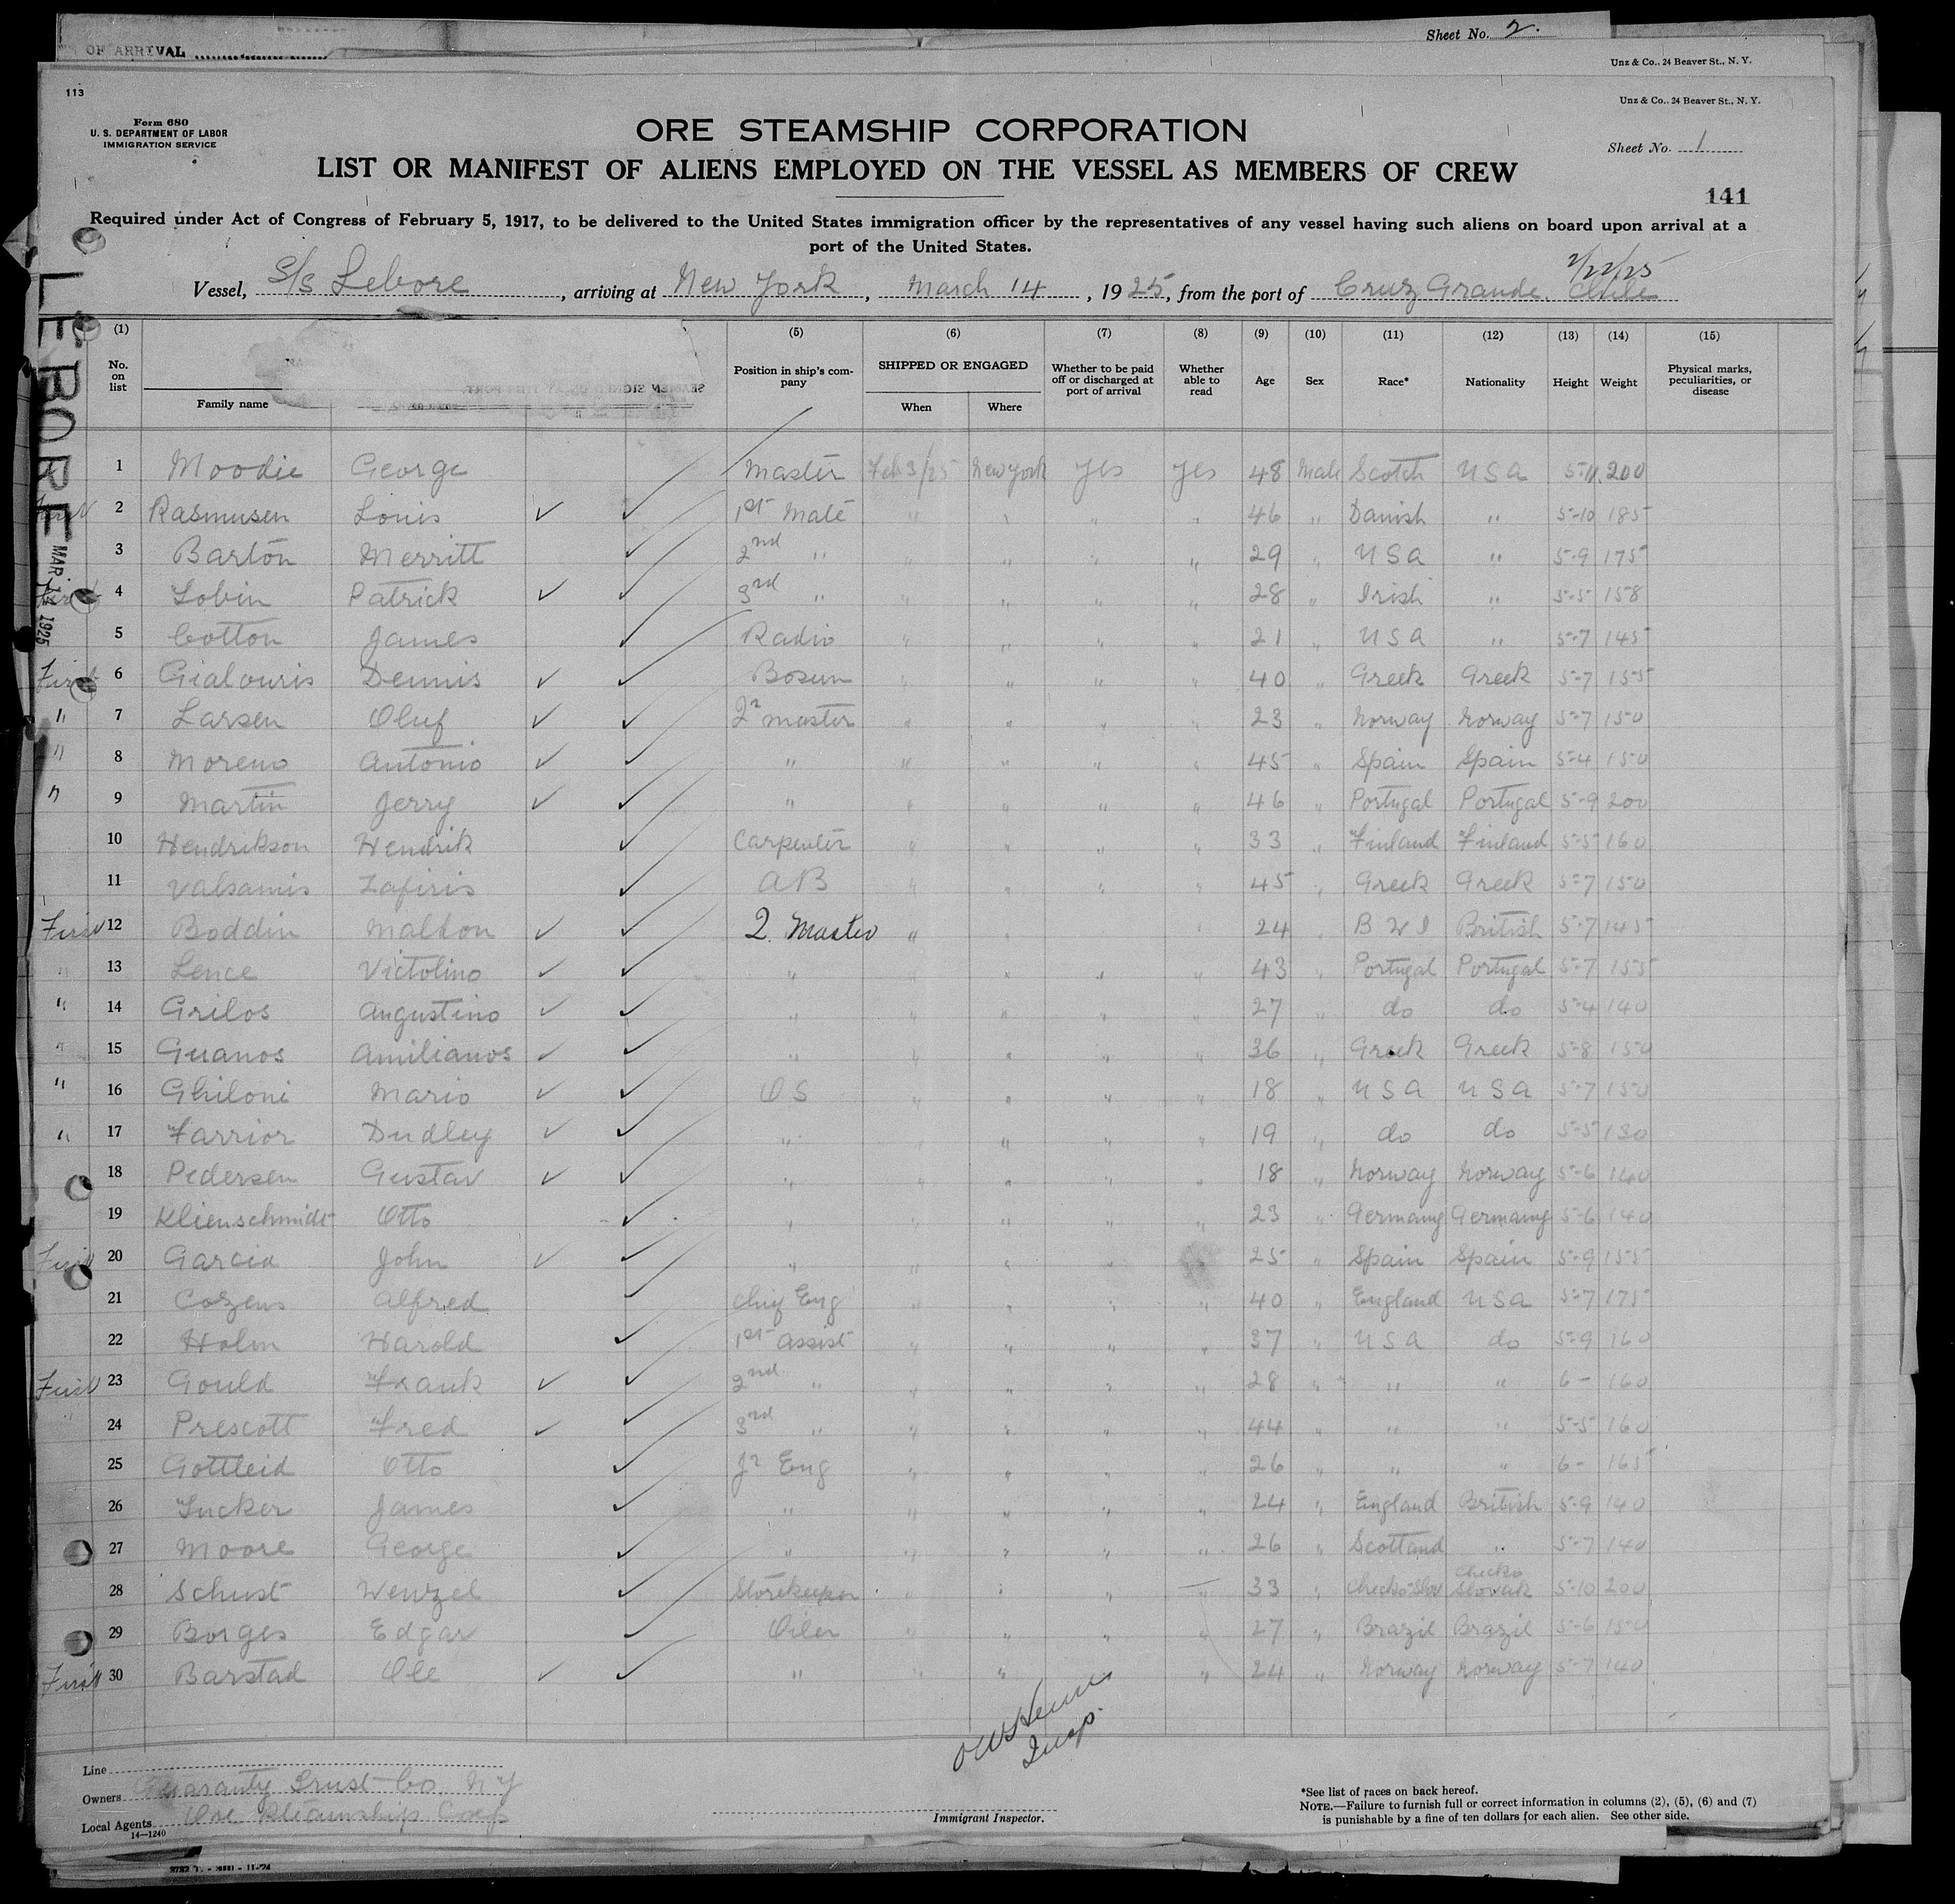 OF ARRIVAL
Sheet No. 2.
Unz & Co., 24 Beaver St., N. Y.
113
Unz & Co., 24 Beaver St., N. Y.
Form 680
U. S. DEPARTMENT OF LABOR
IMMIGRATION SERVICE
ORE STEAMSHIP CORPORATION
Sheet No. 1
LIST OR MANIFEST OF ALIENS EMPLOYED ON THE VESSEL AS MEMBERS OF CREW
141
Required under Act of Congress of February 5, 1917, to be delivered to the United States immigration officer by the representatives of any vessel having such aliens on board upon arrival at a
port of the United States.
2/22/25
Vessel, S/S Lebore, arriving at New York, March 14, 1925, from the port of Cruz Grande. Chile
LEBORE MAR 14 1925
(1) (5) (6) (7) (8) (9) (10) (11) (12) (13) (14) (15)
No. on list Family name Position in ship's company SHIPPED OR ENGAGED When Where Whether to be paid off or discharged at port of arrival Whether able to read Age Sex Race* Nationality Height Weight Physical marks, peculiarities, or disease
1 Moodie George Master Feb 3/25 New York Yes Yes 48 Male Scotch USA 5-11 200
2 Rasmusen Louis ✓ ✓ 1st Mate " " " " 46 " Danish " 5-10 185
3 Barton Merritt ✓ 2nd " " " " " 29 " USA " 5-9 175
4 Tobin Patrick ✓ ✓ 3rd " " " " " 28 " Irish " 5-5 158
5 Cotton James ✓ Radio " " " " 21 " USA " 5-7 145
First 6 Gialouris Dennis ✓ ✓ Bosun " " " " 40 " Greek Greek 5-7 155
" 7 Larsen Oluf ✓ ✓ 2r master " " " " 23 " Norway Norway 5-7 150
" 8 Moreno Antonio ✓ ✓ " " " " " 45 " Spain Spain 5-4 150
" 9 Martin Jerry ✓ ✓ " " " " " 46 " Portugal Portugal 5-9 200
10 Hendrikson Hendrik ✓ Carpenter " " " " 33 " Finland Finland 5-5 160
11 Valsamis Zafiris ✓ AB " " " " 45 " Greek Greek 5-7 150
First 12 Boddin Malton ✓ ✓ 2. Master " " " 24 " B W I British 5-7 145
" 13 Lence Victolino ✓ ✓ " " " " " 43 " Portugal Portugal 5-7 155
" 14 Grilos Augustino ✓ ✓ " " " " " 27 " do do 5-4 140
" 15 Guanos Amilianos ✓ ✓ " " " " " 36 " Greek Greek 5-8 150
" 16 Ghiloni Mario ✓ ✓ OS " " " " 18 " USA USA 5-7 150
" 17 Farrior Dudley ✓ ✓ " " " " " 19 " do do 5-5 130
18 Pedersen Gustav ✓ ✓ " " " " " 18 " Norway Norway 5-6 140
19 Klienschmidt Otto ✓ " " " " " 23 " Germany Germany 5-6 140
First 20 Garcia John ✓ ✓ " " " " 25 " Spain Spain 5-9 155
21 Cozens Alfred ✓ Chief Eng " " " " 40 " England USA 5-7 175
22 Holm Harold ✓ 1st assist " " " " 37 " USA do 5-9 160
First 23 Gould Frank ✓ ✓ 2nd " " " " " 28 " " " 6- 160
24 Prescott Fred ✓ ✓ 3rd " " " " " 44 " " " 5-5 160
25 Gottleid Otto ✓ Jr Eng " " " " 26 " " " 6- 165
26 Tucker James ✓ " " " " " 24 " England British 5-9 140
27 Moore George ✓ " " " " " 26 " Scotland " 5-7 140
28 Schust Wenzel ✓ Storekeeper " " " 33 " Checko-Slov Checko Slovak 5-10 200
29 Borges Edgar ✓ Oiler " " " " 27 " Brazil Brazil 5-6 150
First 30 Barstad Ole ✓ ✓ " " " " " 24 " Norway Norway 5-7 140
Insp.
Line
Owners Guaranty Trust Co. N Y
Local Agents Ore Steamship Corp
14—1240
Immigrant Inspector.
*See list of races on back hereof.
NOTE.—Failure to furnish full or correct information in columns (2), (5), (6) and (7)
is punishable by a fine of ten dollars for each alien. See other side.